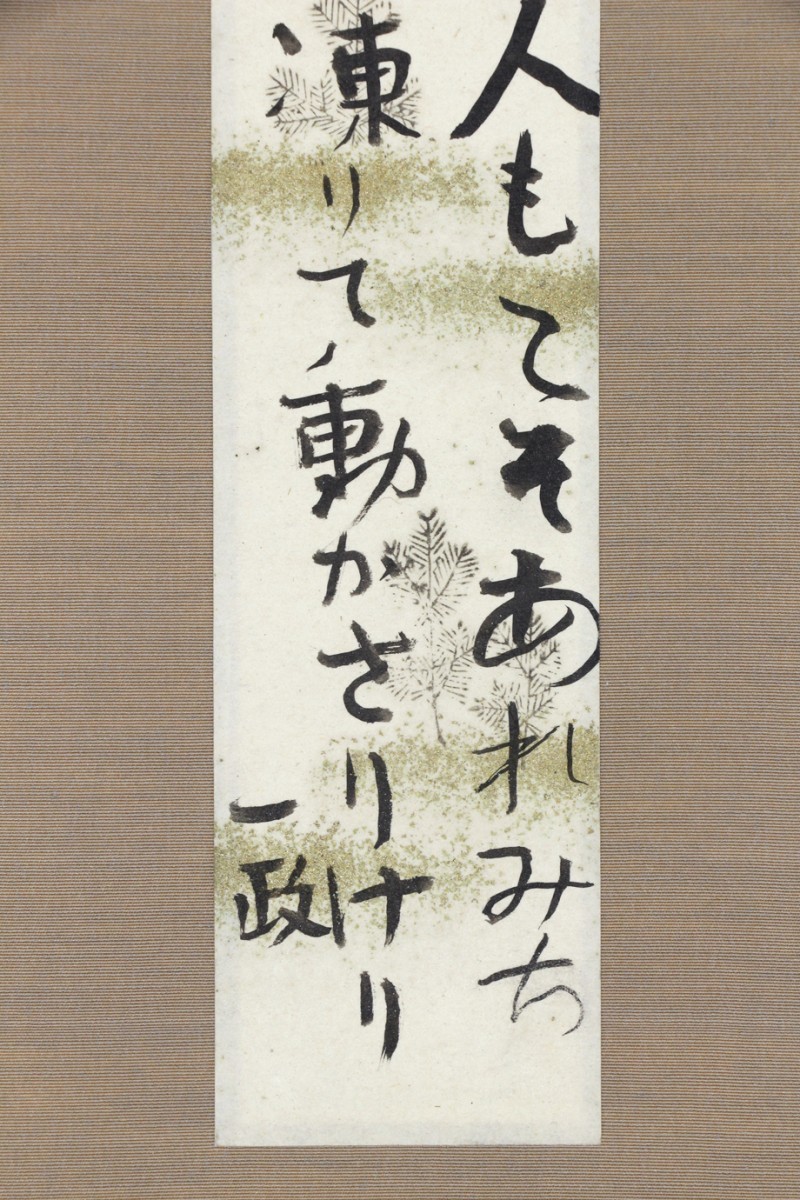 人もこそあれみち
凍りて動かさりけり
一政